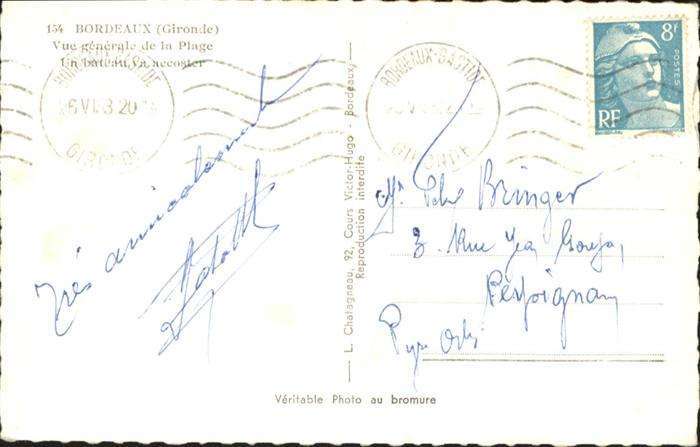 154 BORDEAUX (Gironde)
Vue générale de la Plage
Un bateau va accoster
BORDEAUX-BASTIDE
GIRONDE
BORDEAUX-BASTIDE
GIRONDE
8F
POSTES
RF
Très amicalement
L. Chatagneau, 92, Cours Victor-Hugo - Bordeaux
Reproduction interdite
Bringer
3. Rue Jean
Perpignan
Véritable Photo au bromure